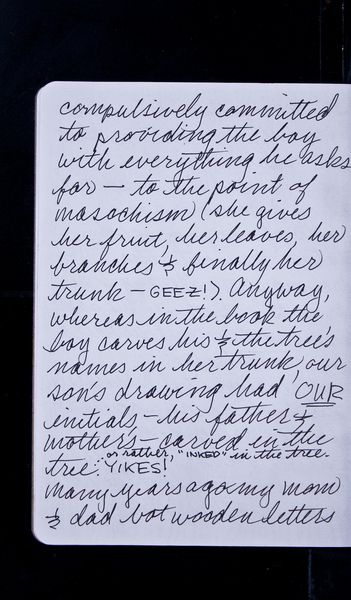 compulsively committed
to providing the boy
with everything he asks
for — to the point of
masochism (she gives
her fruit, her leaves, her
branches & finally her
trunk — GEEZ!). Anyway,
whereas in the book the
boy carves his & the tree's
names in her trunk, our
son's drawing had OUR
initials, — his father &
mother's — carved in the
or rather, "INKED" in the tree.
tree. YIKES!
many years ago my mom
& dad bot wooden letters